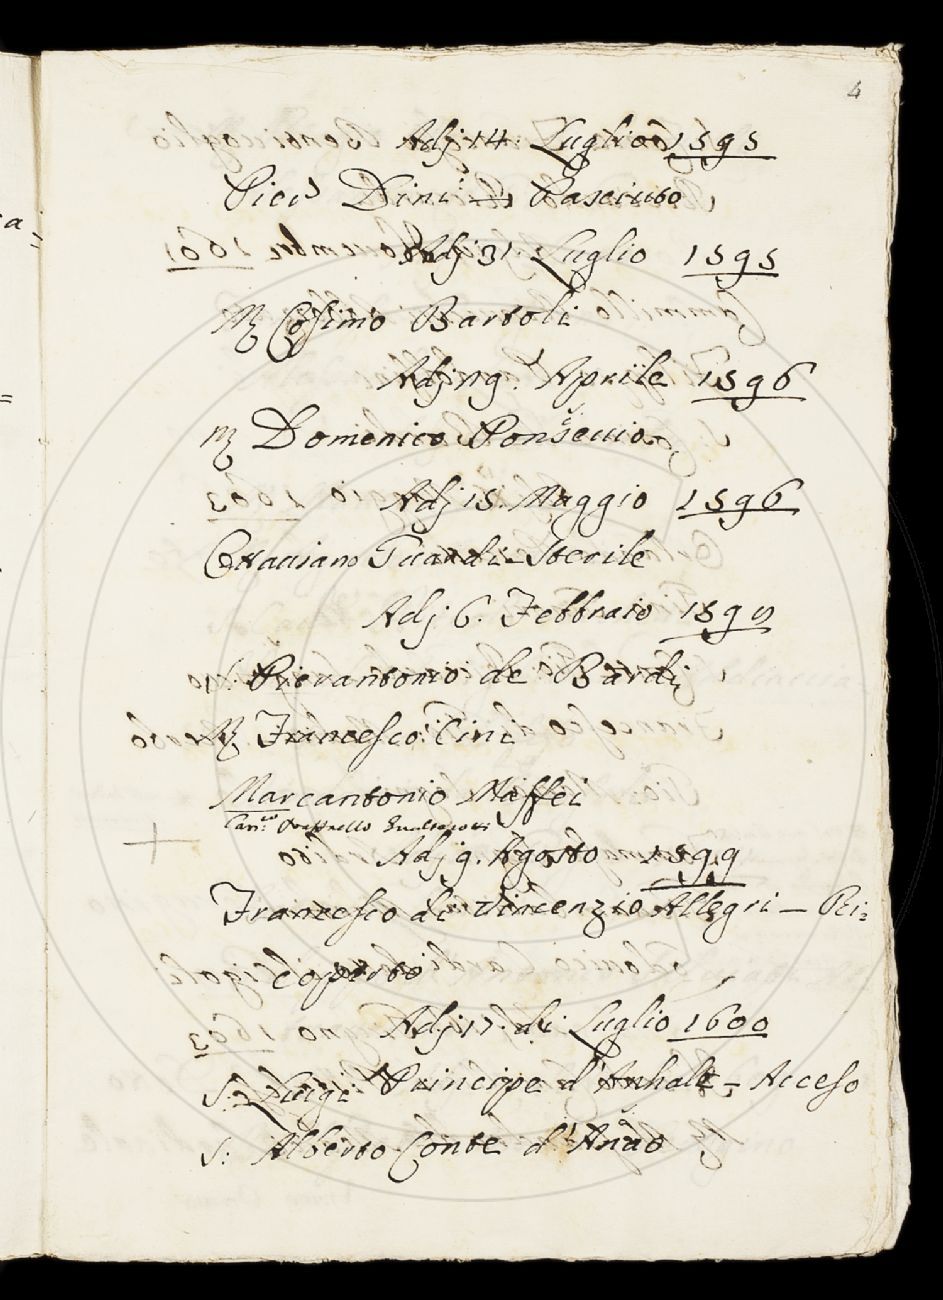 4
Adj 14. Luglio 1595
Piero Dini Pasciuto
Adj 31. Luglio 1595
M Cosimo Bartoli
Adj 19. Aprile 1596
M Domenico
Adj 15. Maggio 1596
Sterile
Adj 6. Febbraio 1597
S. Pierantonio de Bardi
M Francesco Cini
Marcantonio Maffei
Adj 9. Agosto 1599
Francesco di Vincenzio Allegri – Ri=
coperto
Adj 17. di Luglio 1600
S. Luigi Principe d'Anhalt – Acceso
S: Alberto Conte d'